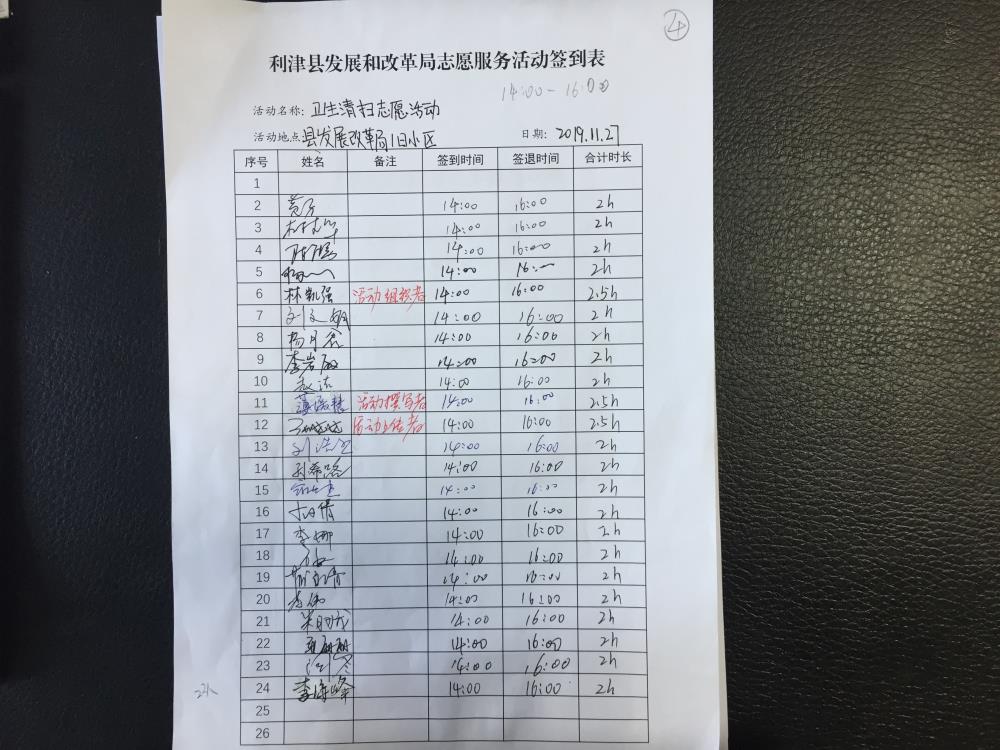 4
利津县发展和改革局志愿服务活动签到表
14:00-16:00
活动名称: 卫生清扫志愿活动
活动地点: 县发展改革局旧小区 日期: 2019.11.27
序号 姓名 备注 签到时间 签退时间 合计时长
1
2 14:00 16:00 2h
3 14:00 16:00 2h
4 14:00 16:00 2h
5 14:00 16: 2h
6 林凯强 活动组织者 14:00 16:00 2.5h
7 刘文 14:00 16:00 2h
8 杨月 14:00 16:00 2h
9 李岩 14:00 16:00 2h
10 14:00 16:00 2h
11 活动撰写者 14:00 16:00 2.5h
12 活动宣传者 14:00 16:00 2.5h
13 刘浩 14:00 16:00 2h
14 刘希路 14:00 16:00 2h
15 14:00 16:00 2h
16 倩 14:00 16:00 2h
17 李娜 14:00 16:00 2h
18 14:00 16:00 2h
19 14:00 16:00 2h
20 李伟 14:00 16:00 2h
21 14:00 16:00 2h
22 14:00 16:00 2h
23 14:00 16:00 2h
24 李 峰 14:00 16:00 2h
25
26